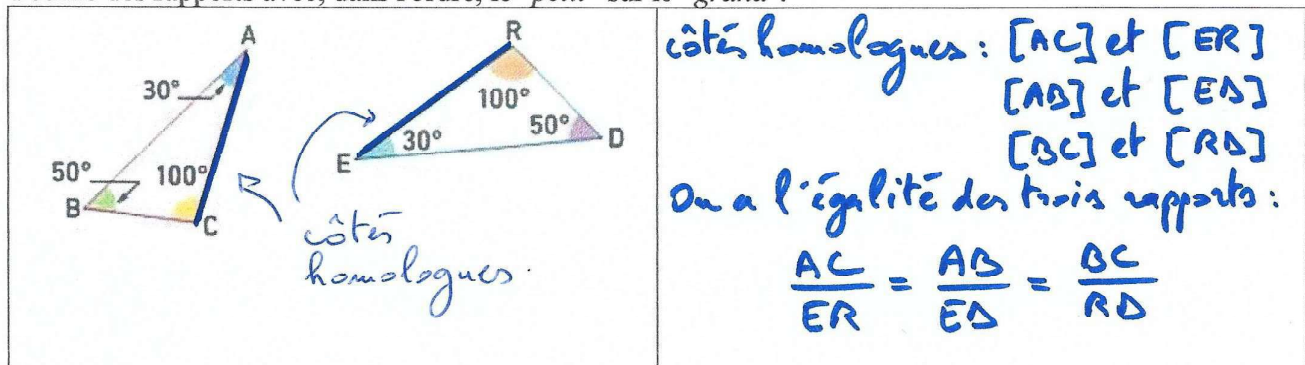 A
30°
50°
100°
B
C
R
100°
50°
D
30°
E
côtés
homologues.
côtés homologues : [AC] et [ER]
[AB] et [ED]
[BC] et [RD]
On a l'égalité des trois rapports :
AC/ER = AB/ED = BC/RD